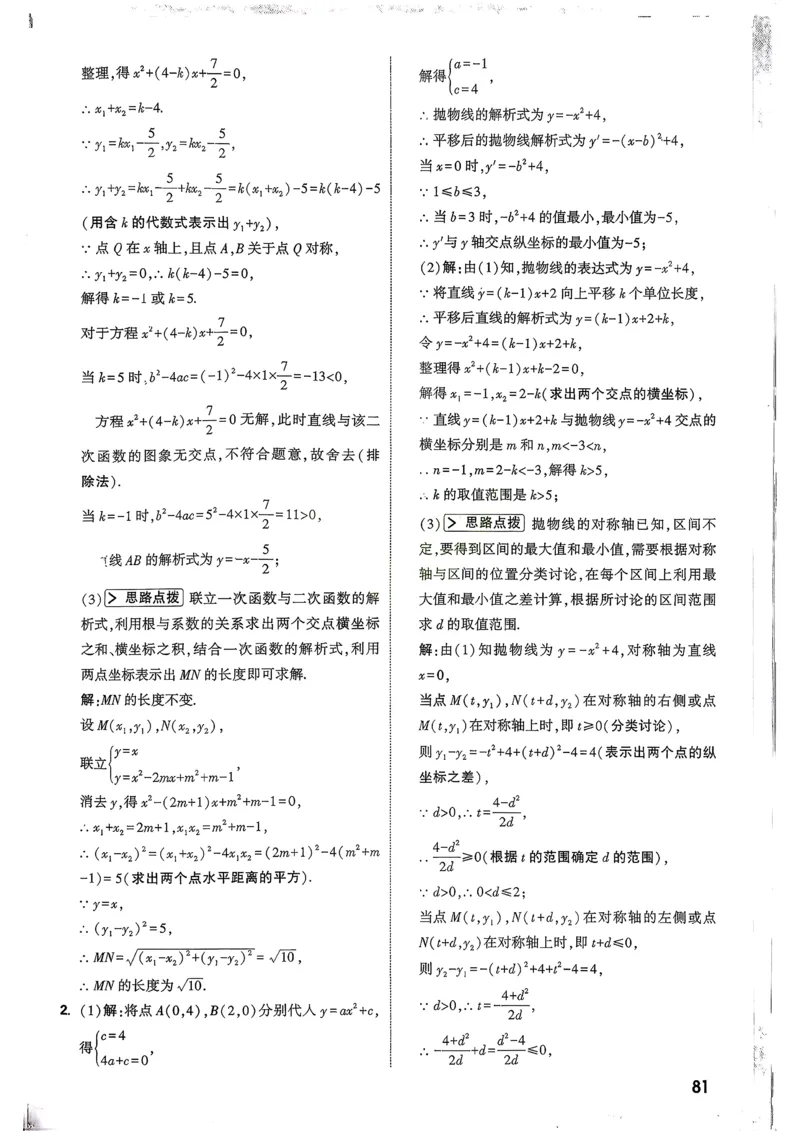 整理,得x²+(4-k)x+7/2=0,
∴x₁+x₂=k-4.
∵y₁=kx₁-5/2,y₂=kx₂-5/2,
∴y₁+y₂=kx₁-5/2+kx₂-5/2=k(x₁+x₂)-5=k(k-4)-5
(用含k的代数式表示出y₁+y₂),
∵点Q在x轴上,且点A,B关于点Q对称,
∴y₁+y₂=0,∴k(k-4)-5=0,
解得k=-1或k=5.
对于方程x²+(4-k)x+7/2=0,
当k=5时,b²-4ac=(-1)²-4×1×7/2=-13<0,
方程x²+(4-k)x+7/2=0无解,此时直线与该二
次函数的图象无交点,不符合题意,故舍去(排
除法).
当k=-1时,b²-4ac=5²-4×1×7/2=11>0,
线AB的解析式为y=-x-5/2;
(3)> 思路点拨 联立一次函数与二次函数的解
析式,利用根与系数的关系求出两个交点横坐标
之和、横坐标之积,结合一次函数的解析式,利用
两点坐标表示出MN的长度即可求解.
解:MN的长度不变.
设M(x₁,y₁),N(x₂,y₂),
联立{y=x
y=x²-2mx+m²+m-1,
消去y,得x²-(2m+1)x+m²+m-1=0,
∴x₁+x₂=2m+1,x₁x₂=m²+m-1,
∴(x₁-x₂)²=(x₁+x₂)²-4x₁x₂=(2m+1)²-4(m²+m
-1)=5(求出两个点水平距离的平方).
∵y=x,
∴(y₁-y₂)²=5,
∴MN=√((x₁-x₂)²+(y₁-y₂)²)=√10,
∴MN的长度为√10.
2. (1)解:将点A(0,4),B(2,0)分别代入y=ax²+c,
得{c=4
4a+c=0,
解得{a=-1
c=4,
∴抛物线的解析式为y=-x²+4,
∴平移后的抛物线解析式为y′=-(x-b)²+4,
当x=0时,y′=-b²+4,
∵1≤b≤3,
∴当b=3时,-b²+4的值最小,最小值为-5,
∴y′与y轴交点纵坐标的最小值为-5;
(2)解:由(1)知,抛物线的表达式为y=-x²+4,
∵将直线y=(k-1)x+2向上平移k个单位长度,
∴平移后直线的解析式为y=(k-1)x+2+k,
令y=-x²+4=(k-1)x+2+k,
整理得x²+(k-1)x+k-2=0,
解得x₁=-1,x₂=2-k(求出两个交点的横坐标),
∵直线y=(k-1)x+2+k与抛物线y=-x²+4交点的
横坐标分别是m和n,m<-3<n,
∴n=-1,m=2-k<-3,解得k>5,
∴k的取值范围是k>5;
(3)> 思路点拨 抛物线的对称轴已知,区间不
定,要得到区间的最大值和最小值,需要根据对称
轴与区间的位置分类讨论,在每个区间上利用最
大值和最小值之差计算,根据所讨论的区间范围
求d的取值范围.
解:由(1)知抛物线为y=-x²+4,对称轴为直线
x=0,
当点M(t,y₁),N(t+d,y₂)在对称轴的右侧或点
M(t,y₁)在对称轴上时,即t≥0(分类讨论),
则y₁-y₂=-t²+4+(t+d)²-4=4(表示出两个点的纵
坐标之差),
∵d>0,∴t=(4-d²)/2d,
∴(4-d²)/2d≥0(根据t的范围确定d的范围),
∵d>0,∴0<d≤2;
当点M(t,y₁),N(t+d,y₂)在对称轴的左侧或点
N(t+d,y₂)在对称轴上时,即t+d≤0,
则y₂-y₁=-(t+d)²+4+t²-4=4,
∵d>0,∴t=-(4+d²)/2d,
∴-(4+d²)/2d+d=(d²-4)/2d≤0,
81